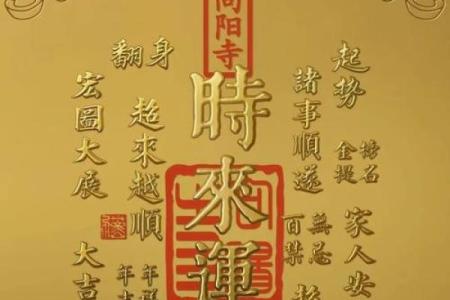 向阳寺
起势
金提
家人安
諸事順遂
無忌
百禁
時來運
翻身
超來越順
宏圖大展
大吉